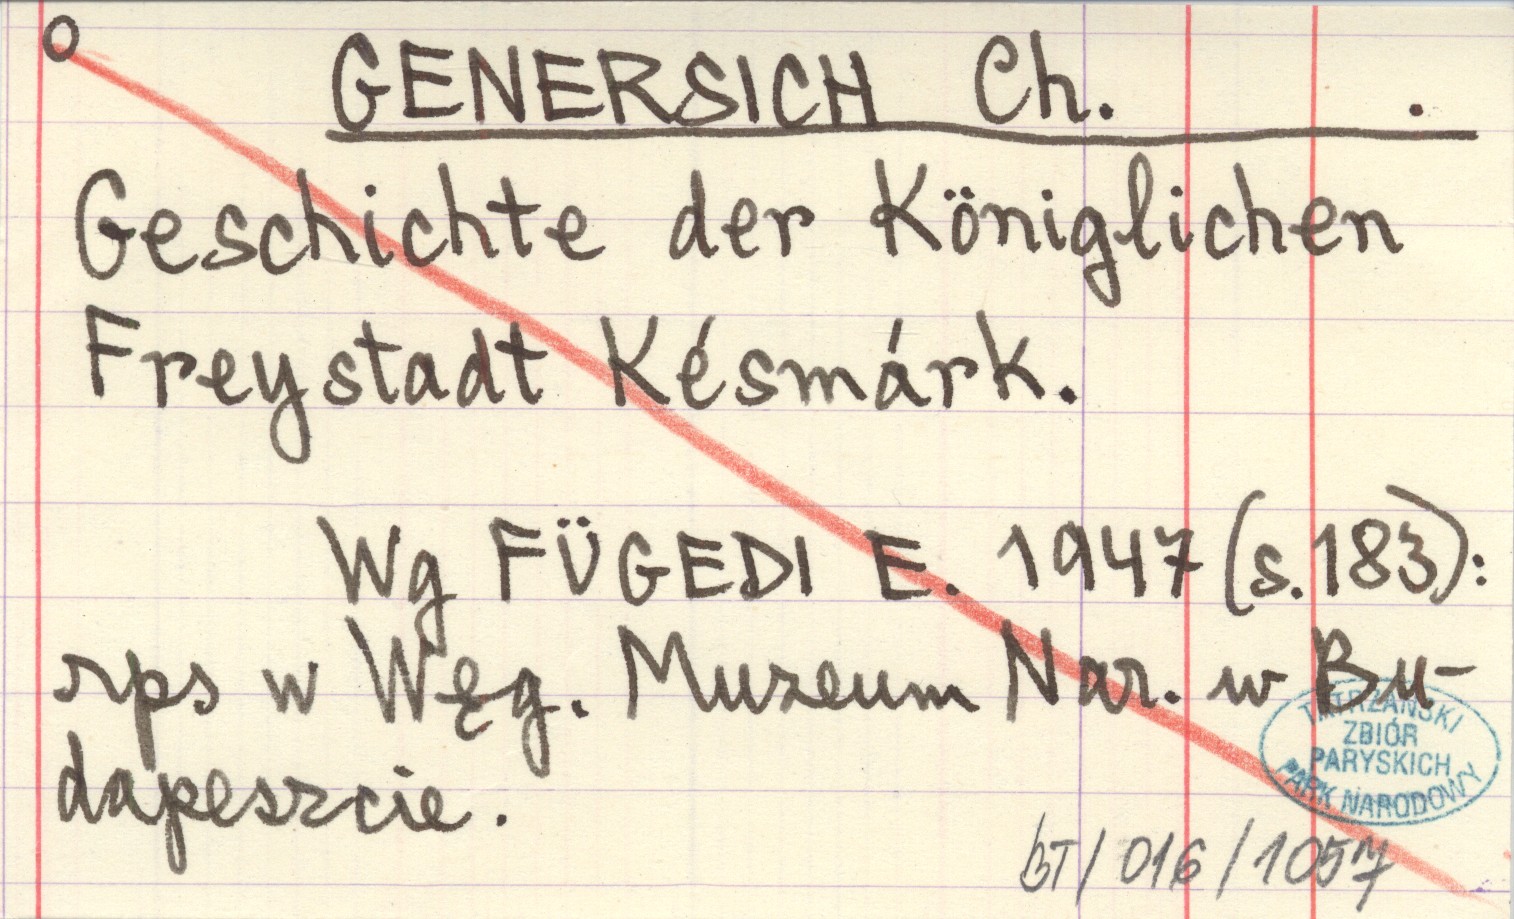 O
GENERSICH Ch. .
Geschichte der Königlichen
Freystadt Késmárk.
Wg FÜGEDI E. 1947 (s. 183):
rps w Węg. Muzeum Nar. w Bu-
dapeszcie.
TATRZAŃSKI
ZBIÓR
PARYSKICH
PARK NARODOWY
BT/016/1057